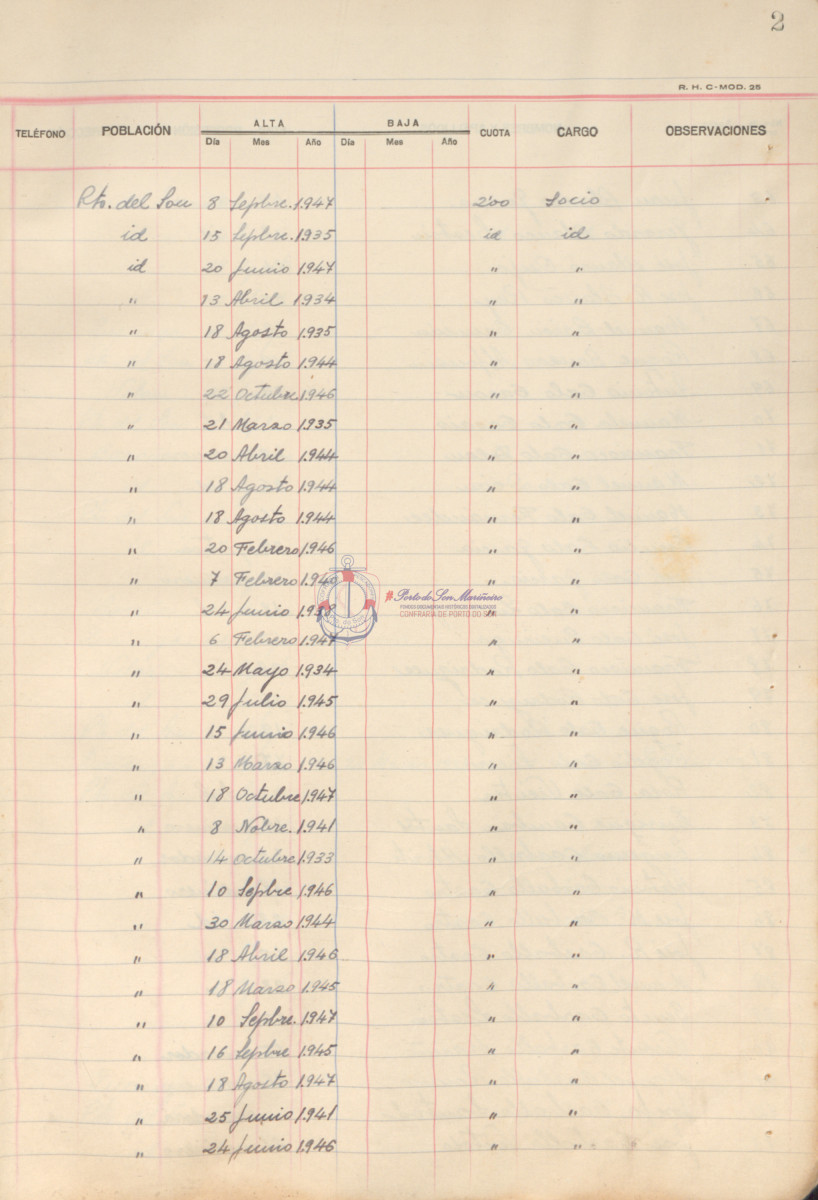 2
R. H. C-MOD. 25
TELÉFONO POBLACIÓN ALTA BAJA CUOTA CARGO OBSERVACIONES
Día Mes Año Día Mes Año
Pto. del Son 8 Sepbre. 1.947 2'00 Socio
id 15 Sepbre. 1.935 id id
id 20 Junio 1.947 " "
" 13 Abril 1.934 " "
" 18 Agosto 1.935 " "
" 18 Agosto 1.944 " "
" 22 Octubre 1.946 " "
" 21 Marzo 1.935 " "
" 20 Abril 1.944 " "
" 18 Agosto 1.944 " "
" 18 Agosto 1.944 " "
" 20 Febrero 1.946 " "
" 7 Febrero 1.940 " "
Porto do Son Mariñeiro
FONDOS DOCUMENTAIS HISTÓRICOS DIXITALIZADOS
CONFRARÍA DE PORTO DO SON
" 24 Junio " "
" 6 Febrero 1.947 " "
" 24 Mayo 1.934 " "
" 29 Julio 1.945 " "
" 15 Junio 1.946 " "
" 13 Marzo 1.946 " "
" 18 Octubre 1.947 " "
" 8 Nobre. 1.941 " "
" 14 Octubre 1.933 " "
" 10 Sepbre 1.946 " "
" 30 Marzo 1.944 " "
" 18 Abril 1.946 " "
" 18 Marzo 1.945 " "
" 10 Sepbre. 1.947 " "
" 16 Sepbre 1.945 " "
" 18 Agosto 1.947 " "
" 25 Junio 1.941 " "
" 24 Junio 1.946 " "